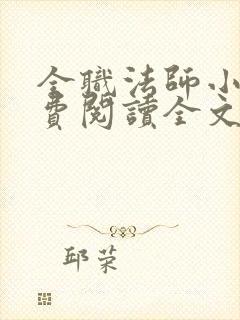 全職法師小
費閱讀全文
邱荣